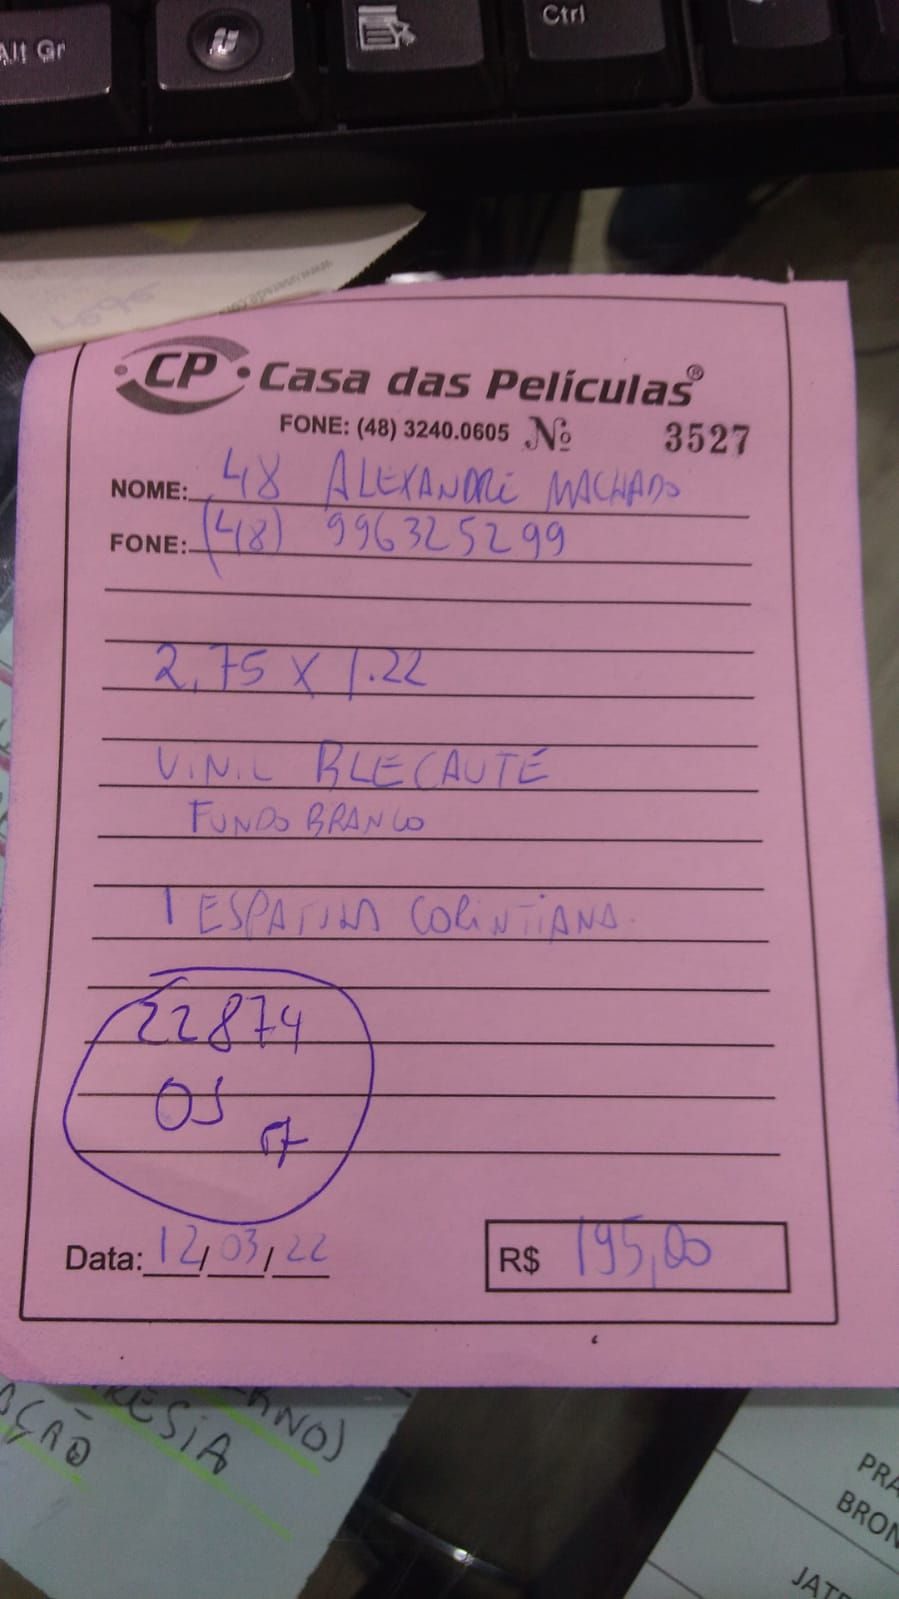 Alt Gr
Ctrl
rede
www.userede.com
CP Casa das Películas®
FONE: (48) 3240.0605 Nº 3527
NOME: 48 ALEXANDRE MACHADO
FONE: (48) 996325299
2,75 X 1.22
VINIL BLECAUTE
FUNDO BRANCO
1 ESPATULA CORINTIANA
22874
OS
Data: 12/03/22
R$ 195,00
RESIA
PRA
BRON
JATE